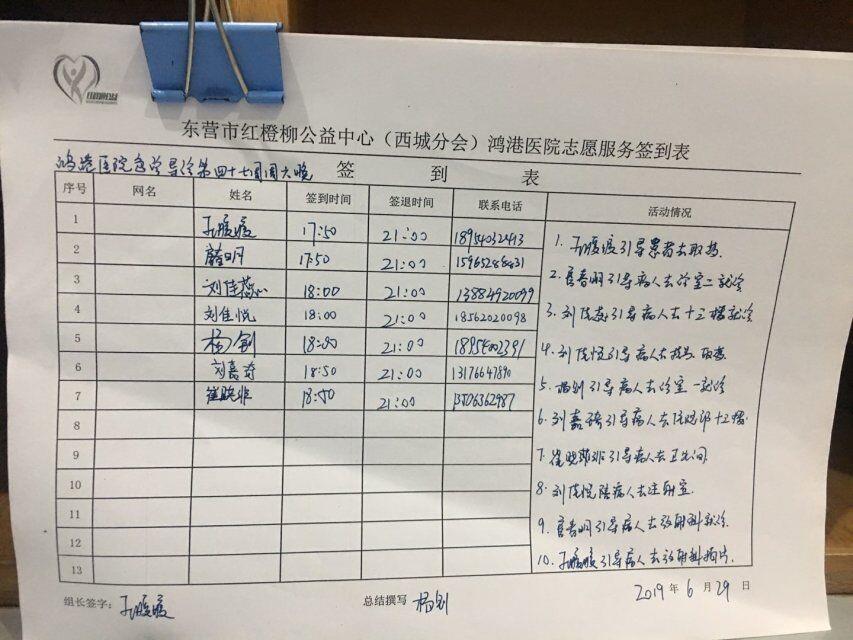 东营市红橙柳公益中心（西城分会）鸿港医院志愿服务签到表
鸿港医院 导诊第四十七周周六晚
签 到 表
序号 网名 姓名 签到时间 签退时间 联系电话 活动情况
1 孔暖暖 17:50 21:00 18954032413
2 17:50 21:00
3 刘佳蕊 18:00 21:00 13884920099
4 刘佳悦 18:00 21:00 18562020098
5 杨钊 18:00 21:00
6 刘嘉 18:50 21:00 13176647890
7 崔晓菲 18:50 21:00
8
9
10
11
12
13
1. 孔暖暖引导患者去取药.
2. 引导病人去诊室二就诊
3. 刘佳蕊引导病人去十三楼就诊
4. 刘佳悦引导病人去 取药
5. 杨钊引导病人去诊室一就诊
6. 刘嘉 引导病人去住院部十三楼
7. 崔晓菲引导病人去卫生间.
8. 刘佳悦陪病人去注射室.
9. 引导病人去放射科就诊.
10. 孔暖暖引导病人去放射科拍片.
组长签字：孔暖暖 总结撰写 杨钊 2019 年 6 月 29 日